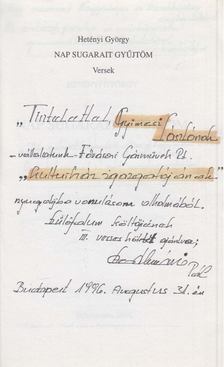 Hetényi György
NAP SUGARAIT GYŰJTÖM
Versek
„Tisztelettel, Gyimesi
Lászlónak
vállalatunk - Fővárosi Gázművek Rt.
„kulturház igazgatójának"
nyugdíjba vonulásom alkalmából.
szülőfalum költőjének
III. verseskötete ajándéka;
Pál
Budapest 1996. Augusztus 31.-én